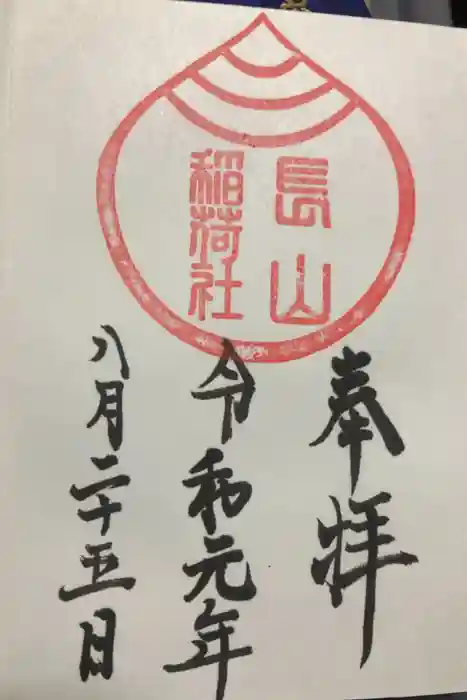 長山
稲荷社
奉拝
令和元年
八月二十五日